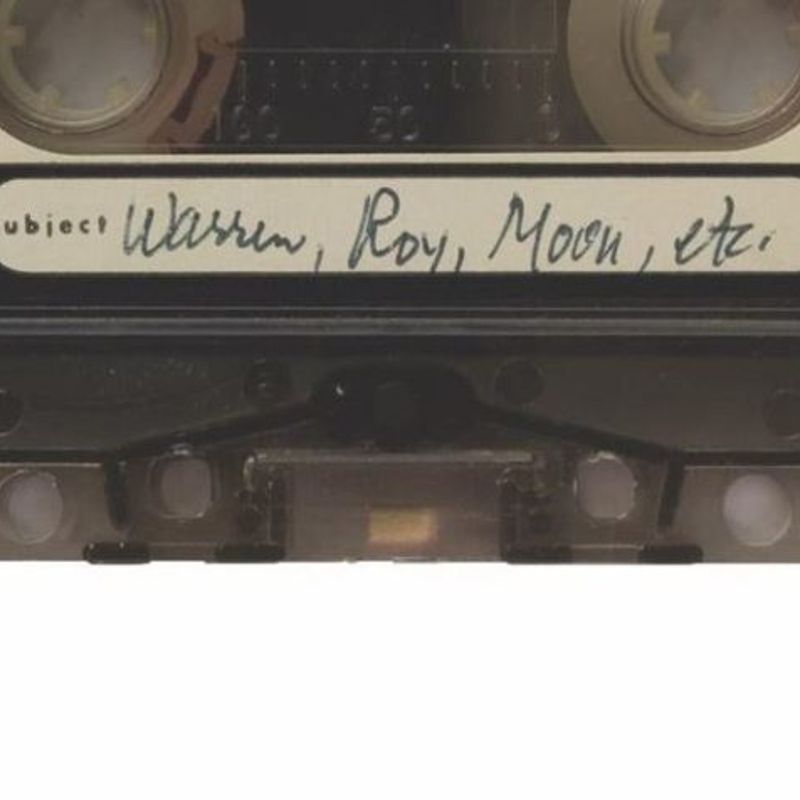 100 50 0
ubject Warren, Roy, Moon, etc.